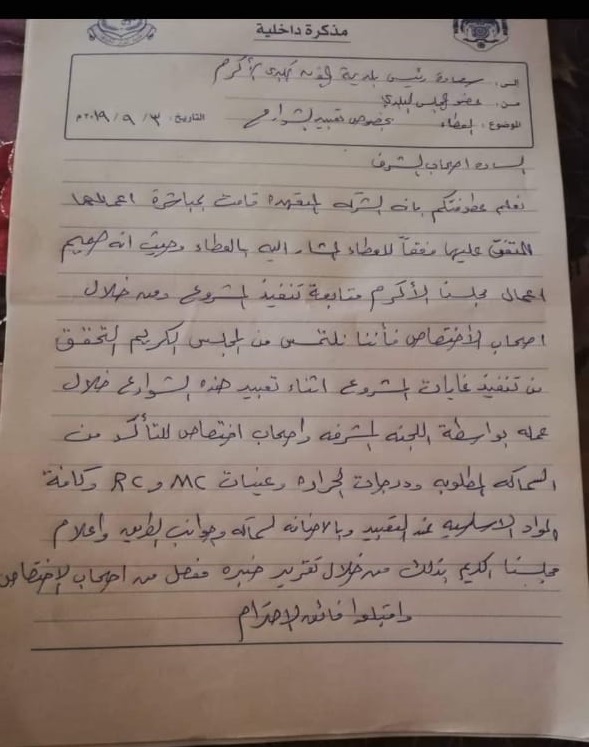 مذكرة داخلية
الى: سعادة رئيس بلدية الأكرم
من: عضو المجلس البلدي
الموضوع: العطاء بخصوص تعبيد الشوارع التاريخ: ٣ / ٩ / ٢٠١٩م
السادة اصحاب الشرف
نعلم عطوفتكم بان الشركة المتعهده قامت بمباشرة اعمالها
المتفق عليها وفقاً للعطاء المشار اليه بالعطاء وحيث انه صميم
اعمال مجلسنا الأكرم متابعة تنفيذ المشروع ومن خلال
اصحاب الأختصاص فأننا نلتمس من المجلس الكريم التحقق
من تنفيذ غايات المشروع اثناء تعبيد هذه الشوارع خلال
عمله بواسطة اللجنه المشرفه واصحاب اختصاص للتأكد من
السماكه المطلوبه ودرجات الحراره وعينات MC و RC وكافة
المواد عند التعبيد وبالاضافه لسماكه وجوانب الطريق واعلام
مجلسنا الكريم بذلك من خلال تقرير خبره مفصل من اصحاب الإختصاص
واقبلوا فائق الاحترام